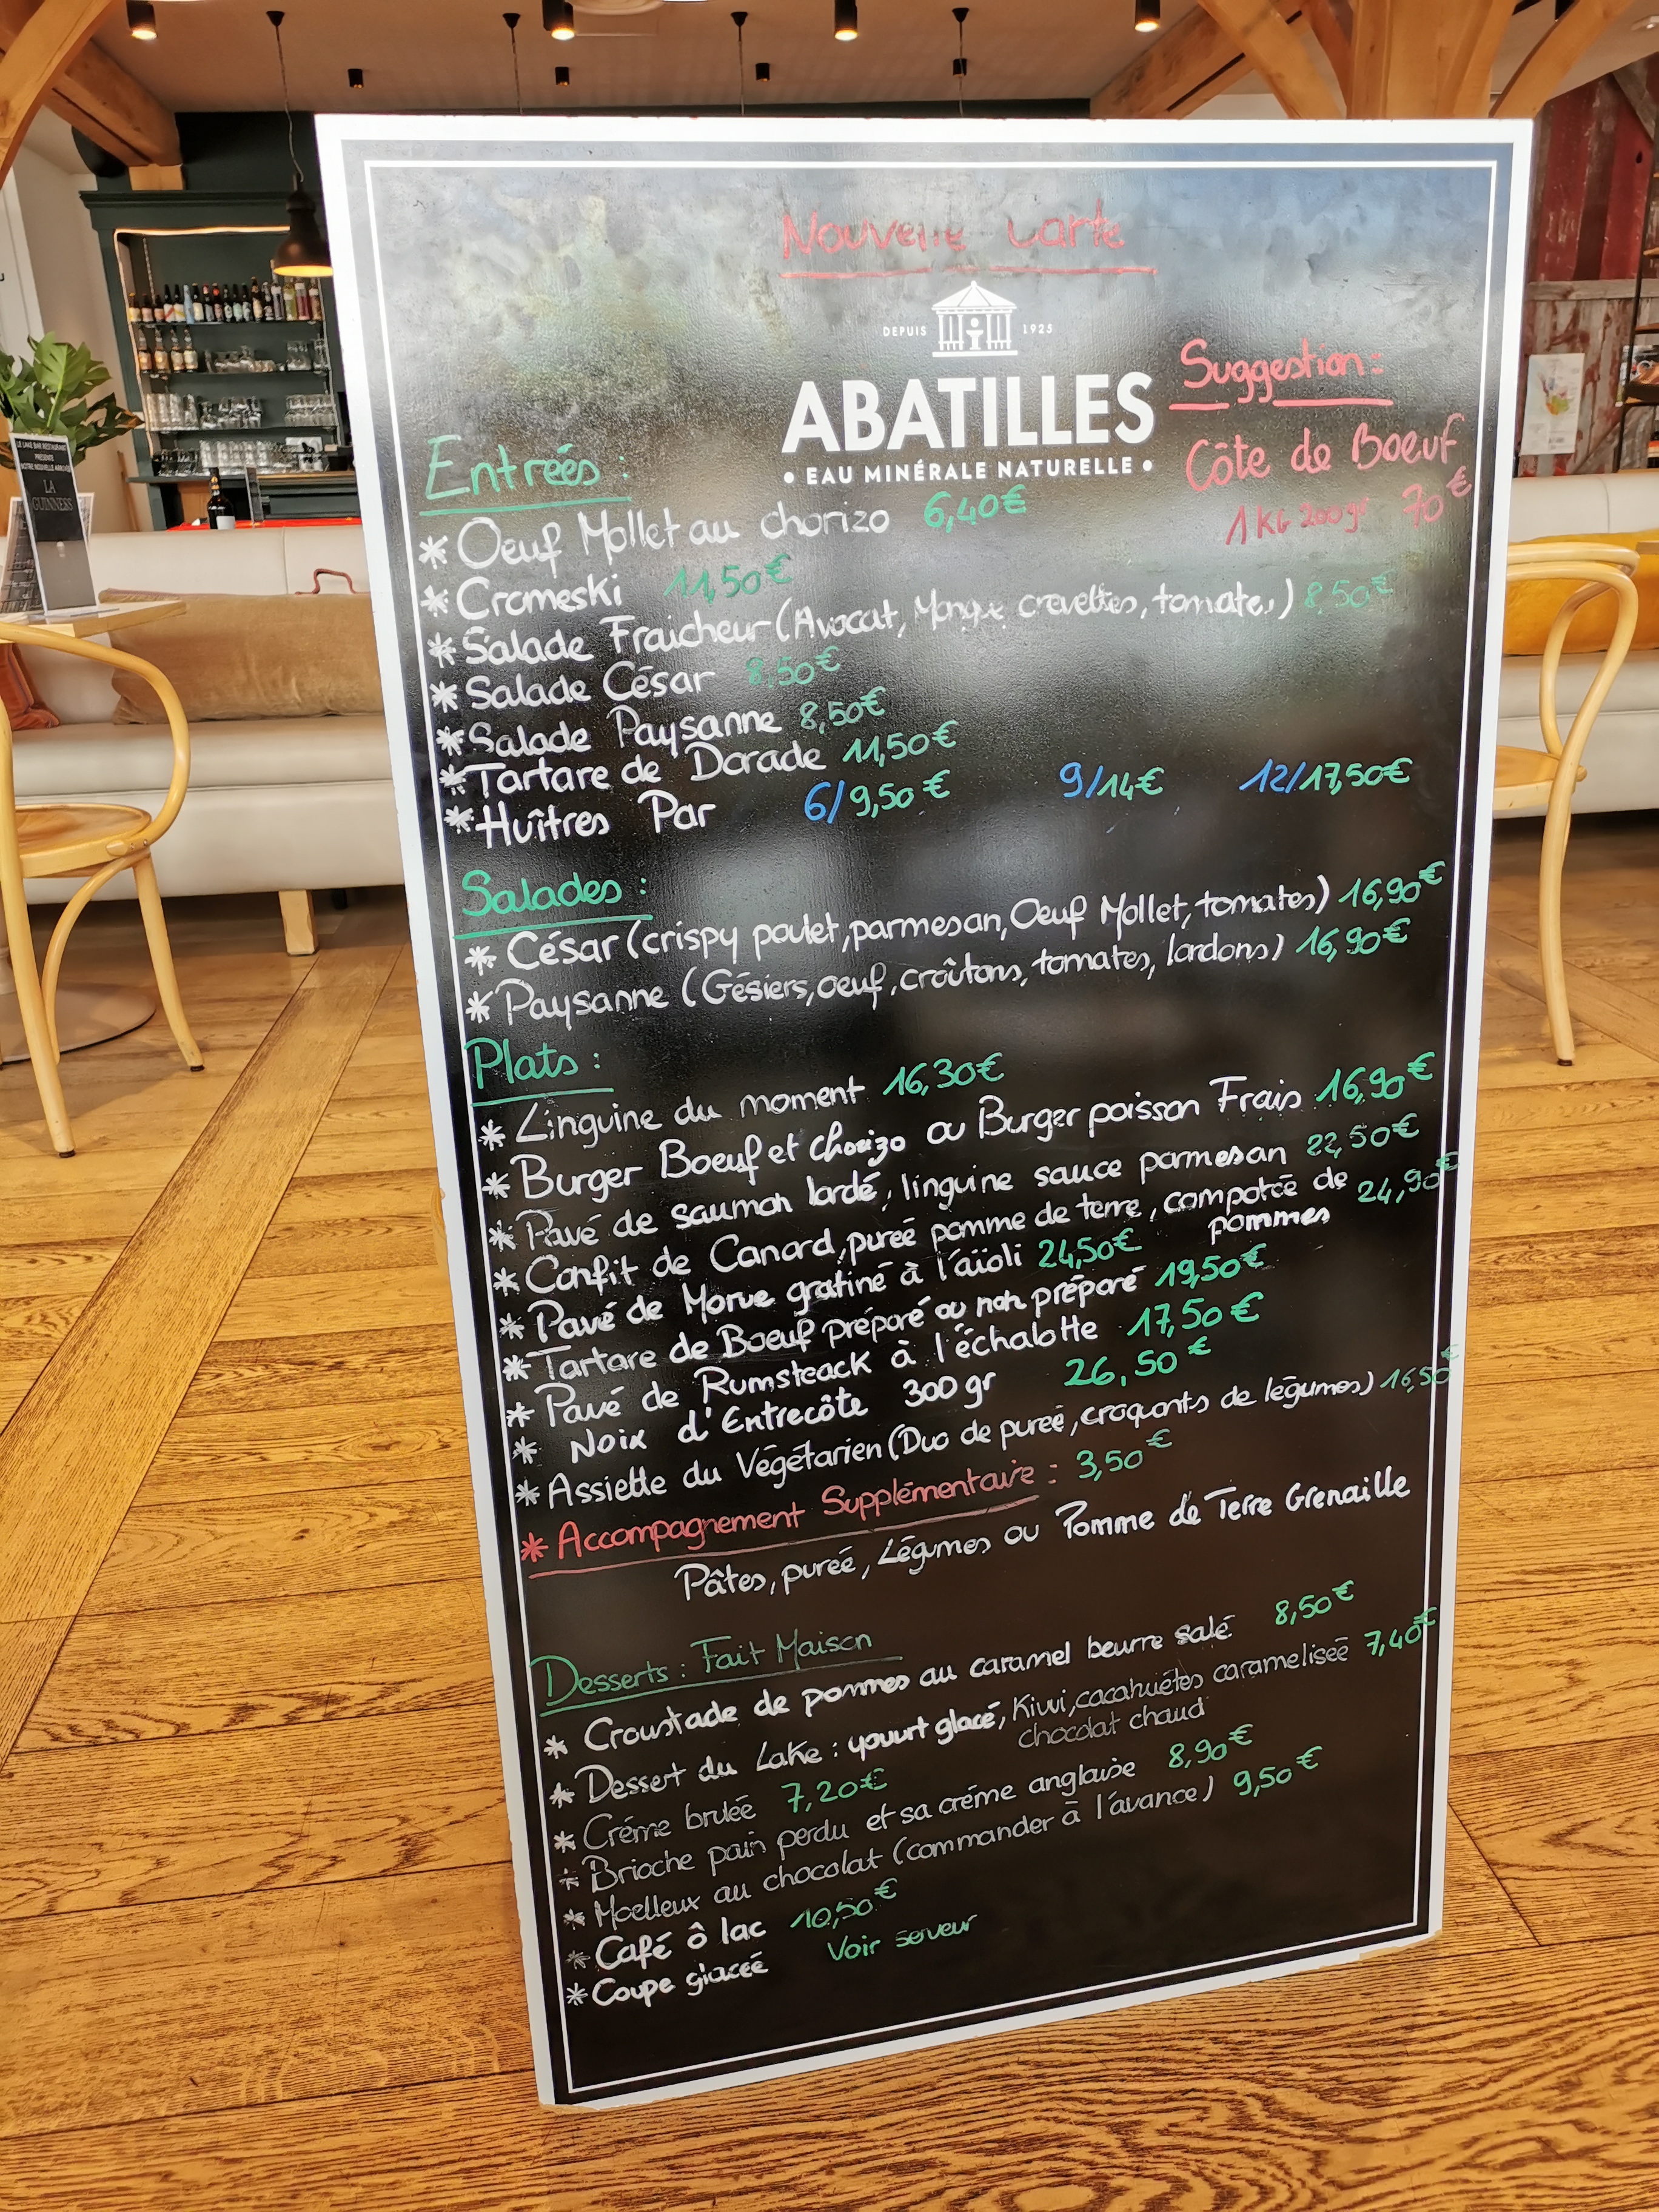 Nouvelle carte
DEPUIS 1925
ABATILLES
• EAU MINÉRALE NATURELLE •
Suggestion :
Côte de Boeuf
1 KG 200 gr 70€
Entrées :
* Oeuf Mollet au chorizo 6,40€
* Cromeski 11,50€
* Salade Fraicheur (Avocat, Mangue, crevettes, tomates,) 8,50€
* Salade César 8,50€
* Salade Paysanne 8,50€
* Tartare de Dorade 11,50€
* Huîtres Par 6/9,50€ 9/14€ 12/17,50€
Salades :
* César (crispy poulet, parmesan, Oeuf Mollet, tomates) 16,90€
* Paysanne (Gésiers, oeuf, croûtons, tomates, lardons) 16,90€
Plats :
* Linguine du moment 16,30€
* Burger Boeuf et Chorizo ou Burger poisson Frais 16,90€
* Pavé de saumon lardé, linguine sauce parmesan 22,50€
* Confit de Canard, pureé pomme de terre, compotée de pommes 24,90€
* Pavé de Morue gratiné à l'aïoli 24,50€
* Tartare de Boeuf préparé ou non préparé 19,50€
* Pavé de Rumsteack à l'échalotte 17,50€
* Noix d'Entrecôte 300 gr 26,50€
* Assiette du Végétarien (Duo de pureé, croquants de légumes) 16,50€
* Accompagnement Supplémentaire : 3,50€
Pâtes, pureé, Légumes ou Pomme de Terre Grenaille
Desserts : Fait Maison
* Croustade de pommes au caramel beurre salé 8,50€
* Dessert du Lake : yaourt glacé, Kiwi, cacahuétes caramelisée 7,40€
chocolat chaud
* Créme brulée 7,20€
* Brioche pain perdu et sa créme anglaise 8,90€
* Moelleux au chocolat (commander à l'avance) 9,50€
* Café ô lac 10,50€
* Coupe glacée Voir serveur
LE LAKE BAR RESTAURANT
PRÉSENTE
NOTRE NOUVELLE ARRIVÉE
LA
GUINNESS